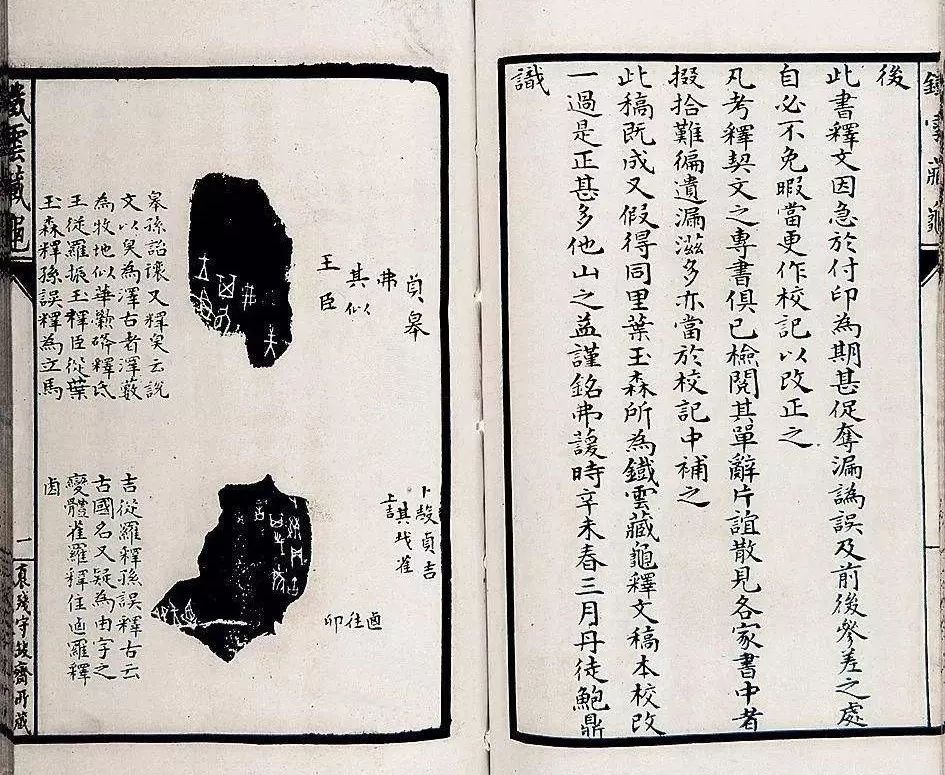 後
此書釋文因急於付印為期甚促奪漏譌誤及前後參差之處
自必不免暇當更作校記以改正之
凡考釋契文之專書俱已檢閱其單辭片誼散見各家書中者
掇拾難徧遺漏滋多亦當於校記中補之
此稿既成又假得同里葉玉森所為鐵雲藏龜釋文稿本校改
一過是正甚多他山之益謹銘弗諼時辛未春三月丹徒鮑鼎
識
鐵雲藏龜
貞皋
弗
其㠯
王
臣
皋孫詒讓又釋㚖云說
文以㚖為澤古者澤藪
為牧地似華歉碎釋氐
王從羅振玉釋臣從葉
玉森釋孫誤釋為立馬
卜㱿貞吉
其戋雀
上吉
卣往卯
吉從羅釋孫誤釋古云
古國名又疑為由字之
變體雀羅釋往卣羅釋
卣
鐵雲藏龜
一
抱殘守缺齋所藏